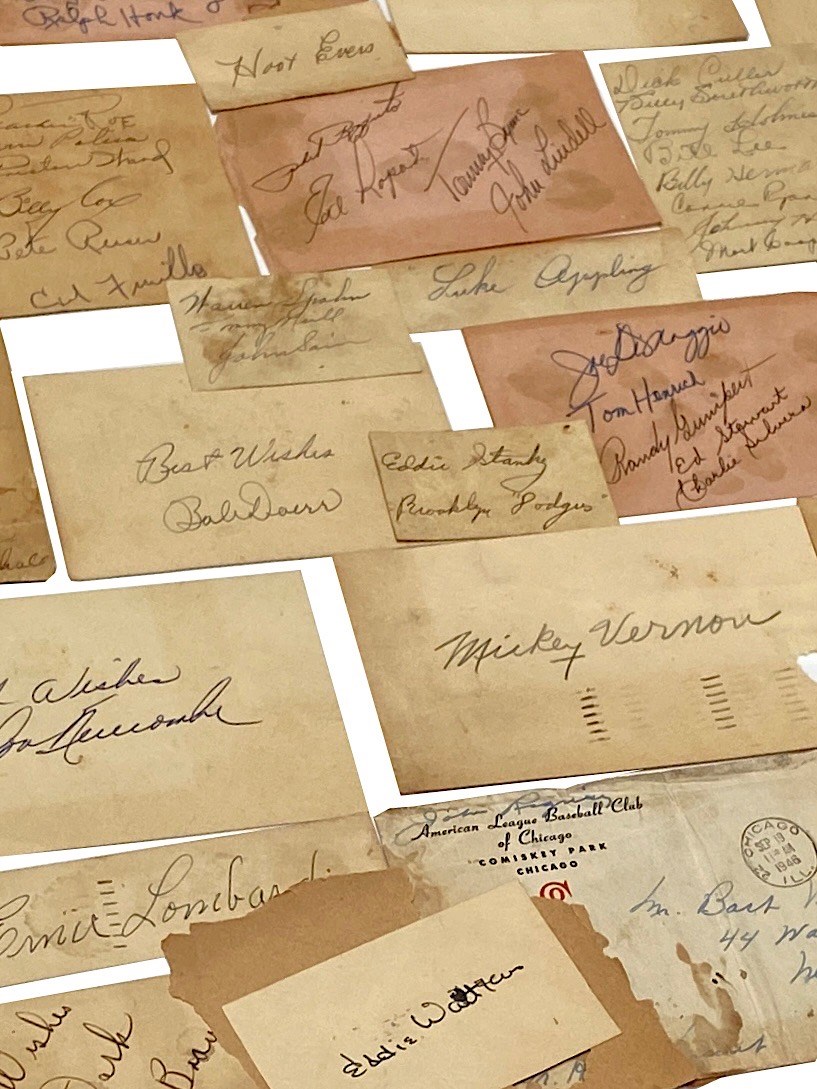 Ralph Houk
Hoot Evers
Billy Cox
Pete Reiser
Carl Furillo
Phil Rizzuto
Joe
Tommy Byrne
John Lindell
Dick Culler
Billy Southworth
Tommy Holmes
Bill Lee
Billy Herman
Connie Ryan
Johnny
Warren Spahn
Tommy
John Sain
Luke Appling
Joe DiMaggio
Tom Henrich
Randy Gumpert
Ed Stewart
Charlie Silvera
Best Wishes
Bob Doerr
Eddie Stanky
Brooklyn "Dodgers"
Mickey Vernon
Wishes
Don Newcombe
American League Baseball Club
of Chicago
COMISKEY PARK
CHICAGO
CHICAGO
SEP 19
11 AM
1946
ILL.
Mr. Bart
44
Ernie Lombardi
Eddie Waitkus
Wishes